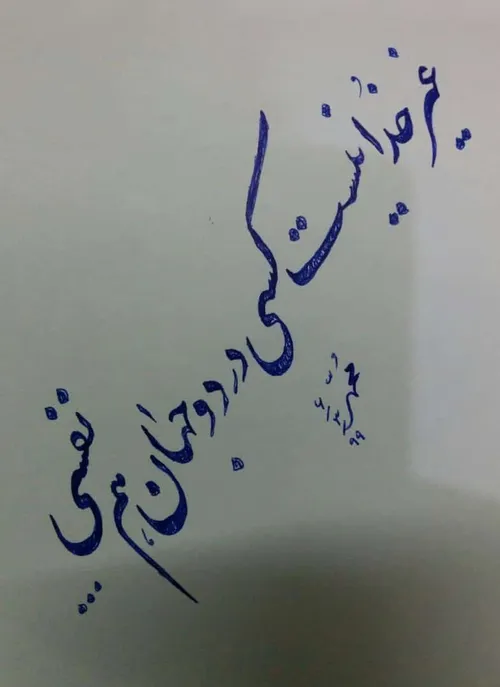 غیر خدا نیست کسی در دو جهان هم نفسی...
۹۹